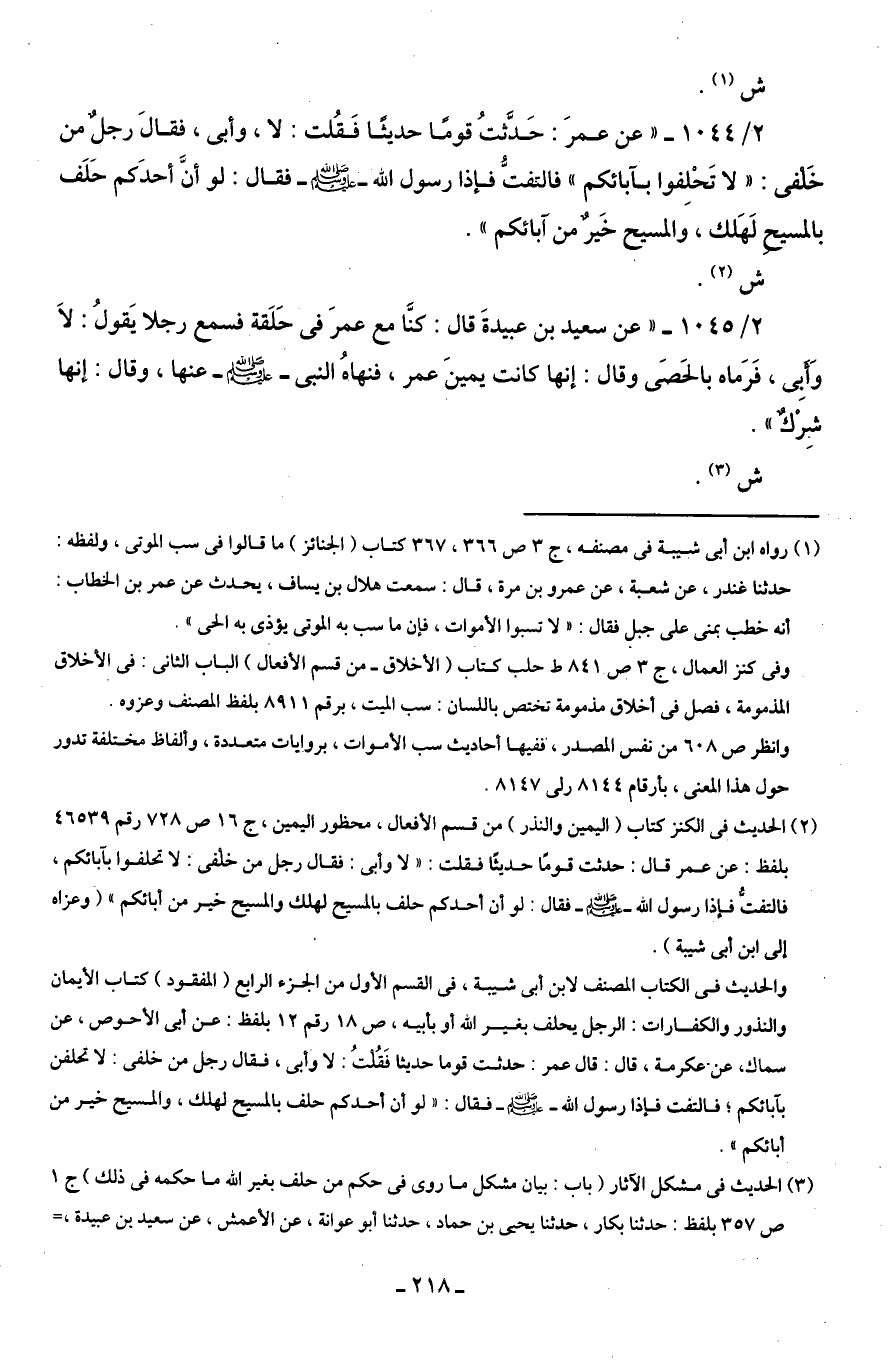 ش (١) .
٢/ ١٠٤٤ ـ « عن عـمرَ : حَـدَّثتُ قومًا حديثًا فَـقُلت : لا ، وأبى ، فقـالَ رجلٌ من
خَلْفى : « لا تَحْلِفوا بـآبائكم » فالتفتُّ فـإذا رسول الله ـ ﷺ ـ فقـال : لو أنَّ أحدَكم حَلَف
بالمسيحِ لَهَلك ، والمسيح خَيرٌ من آبائكم » .
ش (٢) .
٢/ ١٠٤٥ ـ « عن سعيد بن عبيدةَ قال : كنَّا مع عمرَ فى حَلَقة فسمع رجلا يَقولُ : لاَ
وَأَبِى ، فَرَماه بالحَصَى وقال : إنها كانت يمينَ عمر ، فنهاهُ النبى ـ ﷺ ـ عنها ، وقال : إنها
شِرْكٌ » .
ش (٣) .
(١) رواه ابن أبى شـيبـة فى مصنفـه ، ج ٣ ص ٣٦٦ ، ٣٦٧ كتـاب ( الجنائز ) ما قـالوا فى سب الموتى ، ولفظه :
حدثنا غندر ، عن شعـبة ، عن عمرو بن مرة ، قـال : سمعت هلال بن يساف ، يحـدث عن عمر بن الخطاب :
أنه خطب بمنى على جبل فقال : « لا تسبوا الأموات ، فإن ما سب به الموتى يؤذى به الحى » .
وفى كنز العمال ، ج ٣ ص ٨٤١ ط حلب كـتاب ( الأخلاق ـ من قسم الأفعال ) البـاب الثانى : فى الأخلاق
المذمومة ، فصل فى أخلاق مذمومة تختص باللسان : سب الميت ، برقم ٨٩١١ بلفظ المصنف وعزوه .
وانظر ص ٦٠٨ من نفس المصـدر ، ففيهـا أحاديث سب الأمـوات ، بروايات متعـددة ، وألفاظ مخـتلفة تدور
حول هذا المعنى ، بأرقام ٨١٤٤ رلى ٨١٤٧ .
(٢) الحديث فى الكنز كتاب ( اليمين والنذر ) من قـسم الأفعال ، محظور اليمين ، ج ١٦ ص ٧٢٨ رقم ٤٦٥٣٩
بلفظ : عن عمـر قـال : حدثت قومًـا حديثًـا فـقلت : « لا وأبى : فقـال رجل من خلْفى : لا تحلفـوا بآبائكم ،
فالتفتُّ فـإذا رسول الله ـ ﷺ ـ فقال : لو أن أحـدكم حلف بالمسيح لهلك والمسيح خيـر من أبائكم » ( وعزاه
إلى ابن أبى شيبة ) .
والحديث فـى الكتاب المصنف لابن أبى شـيبـة ، فى القسم الأول من الجـزء الرابع ( المفقـود ) كتـاب الأيمان
والنذور والكفـارات : الرجل يحلف بغـيـر الله أو بأبيـه ، ص ١٨ رقم ١٢ بلفظ : عـن أبى الأحـوص ، عن
سماك، عن عكرمـة ، قال : قال عمر : حدثـت قوما حديثا فَقُلْتُ : لا وأبى ، فـقال رجل من خلفى : لا تحلفن
بآبائكم ؛ فـالتفت فـإذا رسول الله ـ ﷺ ـ فـقال : « لو أن أحـدكم حلف بالمسيح لهلك ، والمـسيح خيـر من
أبائكم » .
(٣) الحديث فى مـشكل الآثار ( باب : بيان مشكل مـا روى فى حكم من حلف بغير الله مـا حكمه فى ذلك ) ج ١
ص ٣٥٧ بلفظ : حدثنا بكار ، حدثنا يحيى بن حماد ، حدثنا أبو عوانة ، عن الأعمش ، عن سعيد بن عبيدة ،=
ـ ٢١٨ ـ